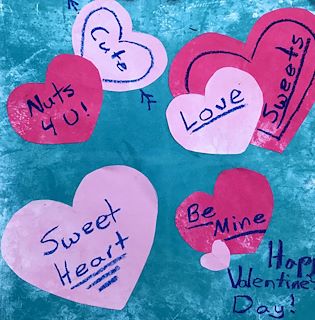 Cute
Nuts
4 U!
Love
Sweets
Sweet
Heart
Be
Mine
Happy
Valentine's
Day!